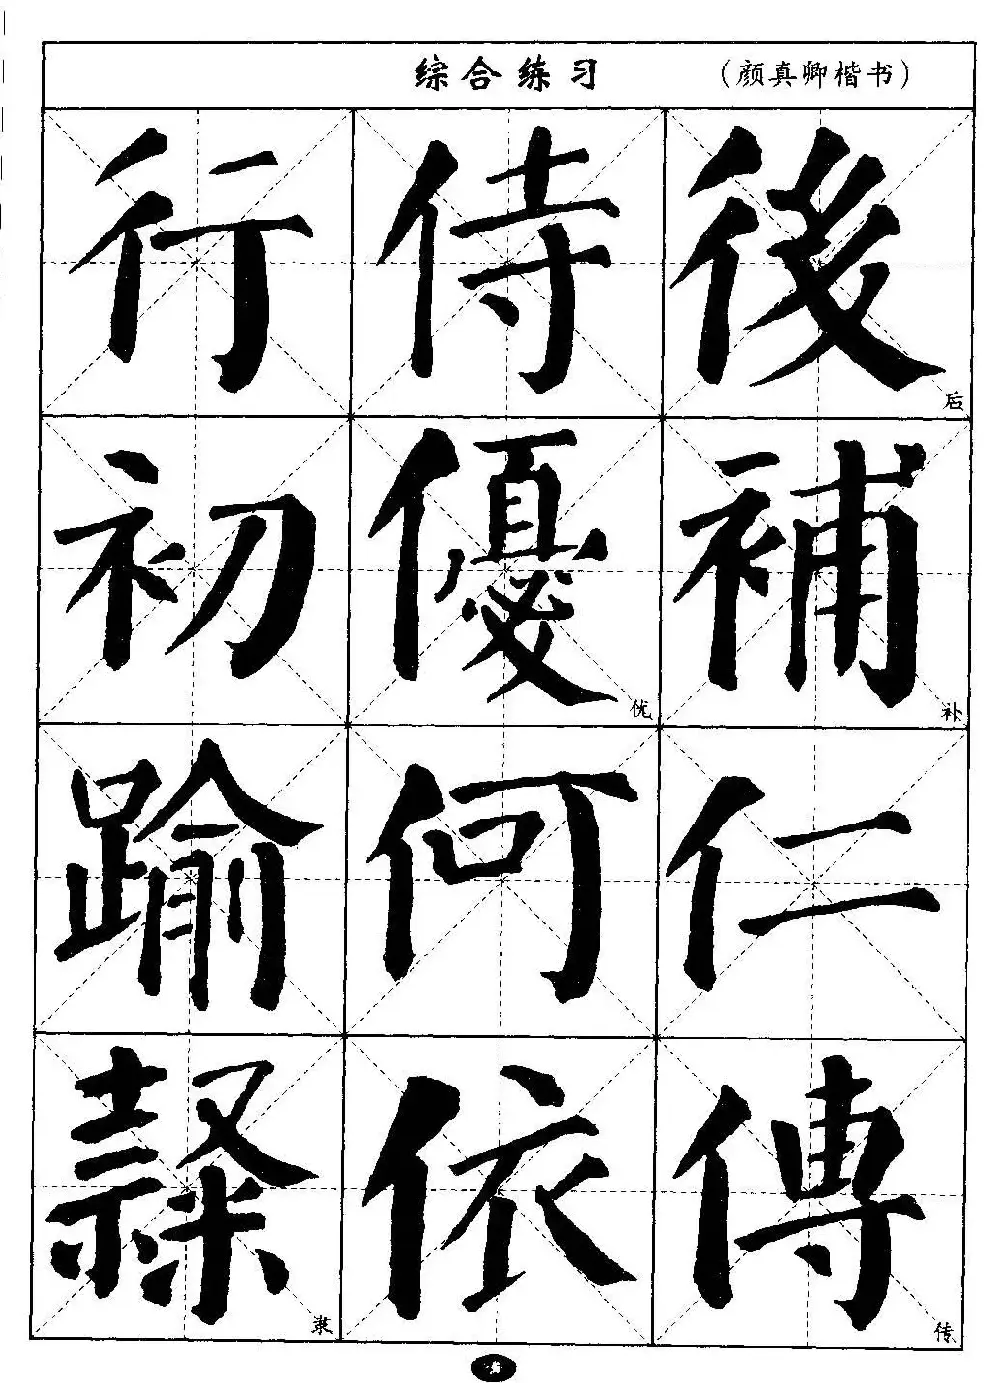 综合练习 (颜真卿楷书)
行 侍 後 后
初 優 优 補 补
踰 何 仁
隸 隶 依 傳 传